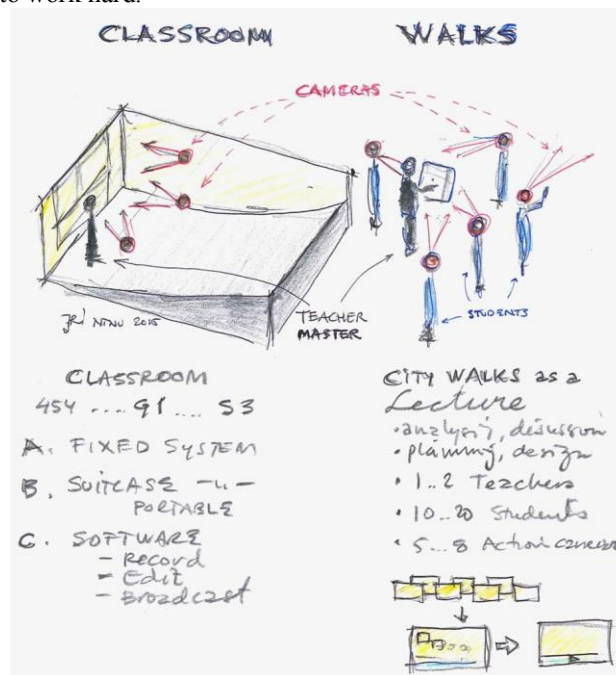 to work hard.
CLASSROOM
WALKS
CAMERAS
TEACHER
MASTER
STUDENTS
NTNU 2015
CLASSROOM
454 .... G1 .... S3
A. FIXED SYSTEM
B. SUITCASE -"-
PORTABLE
C. SOFTWARE
- Record
- Edit
- Broadcast
CITY WALKS as a
Lecture
• analysis, discussion
• planning, design
• 1..2 Teachers
• 10..20 Students
• 5...8 Action